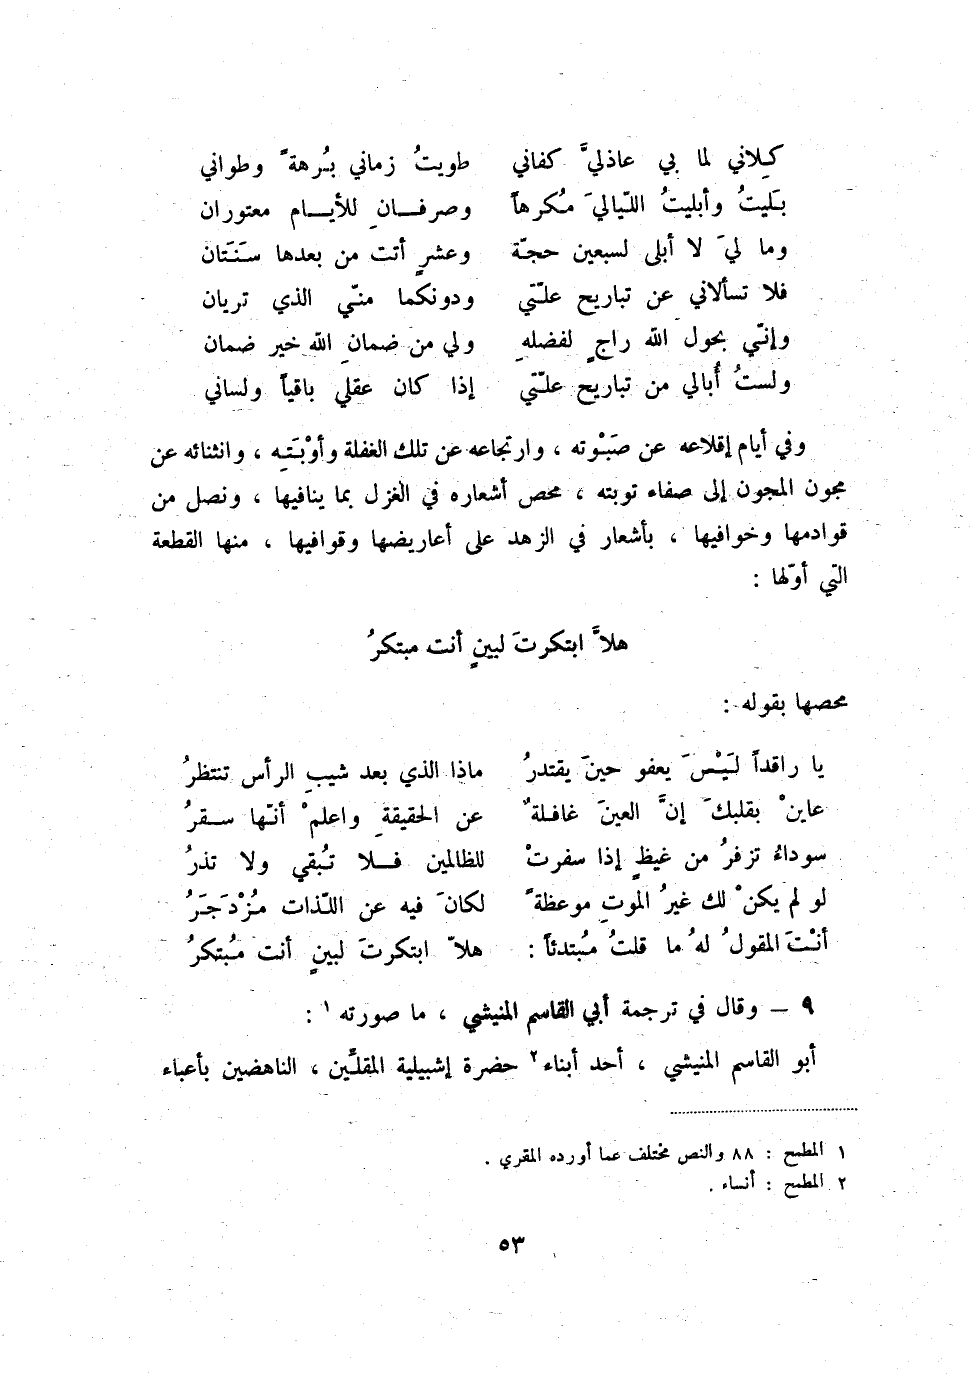 كِلاني لما بي عاذليَّ كفاني طويتُ زماني بُرهةً وطواني
بَليتُ وأبليتُ اللّياليَ مُكرهاً وصرفانِ للأيام معتوران
وما ليَ لا أبلى لسبعين حجّة وعشرٍ أتت من بعدها سَنَتان
فلا تسألاني عن تباريح علّتي ودونكما منّي الذي تريان
وإنّي بحول الله راجٍ لفضلهِ ولي من ضمانِ الله خير ضمان
ولستُ أُبالي من تباريح علّتي إذا كان عقلي باقياً ولساني
وفي أيام إقلاعه عن صَبْوته ، وارتجاعه عن تلك الغفلة وأوْبَتِه ، وانثنائه عن
مجون المجون إلى صفاء توبته ، محص أشعاره في الغزل بما ينافيها ، ونصل من
قوادمها وخوافيها ، بأشعار في الزهد على أعاريضها وقوافيها ، منها القطعة
التّي أوّلها :
هلاَّ ابتكرتَ لبينٍ أنت مبتكرُ
محصها بقوله :
يا راقداً لَيْسَ يعفو حينَ يقتدرُ ماذا الذي بعد شيبِ الرأس تنتظرُ
عاينْ بقلبكَ إنَّ العينَ غافلةٌ عن الحقيقةِ واعلمْ أنّها سقرُ
سوداءُ تزفرُ من غيظٍ إذا سفرتْ للظالمين فلا تُبقي ولا تذرُ
لو لم يكنْ لك غيرُ الموتِ موعظةً لكانَ فيه عن اللّذات مُزْدَجَرُ
أنْتَ المقولُ لهُ ما قلتُ مُبتدئاً : هلاّ ابتكرتَ لبينٍ أنت مُبتكرُ
٩ – وقال في ترجمة أبي القاسم المنيشي ، ما صورته ١ :
أبو القاسم المنيشي ، أحد أبناء ٢ حضرة إشبيلية المقلّين ، الناهضين بأعباء
١ المطمح : ٨٨ والنص مختلف عما أورده المقري .
٢ المطمح : أنساء .
٥٣